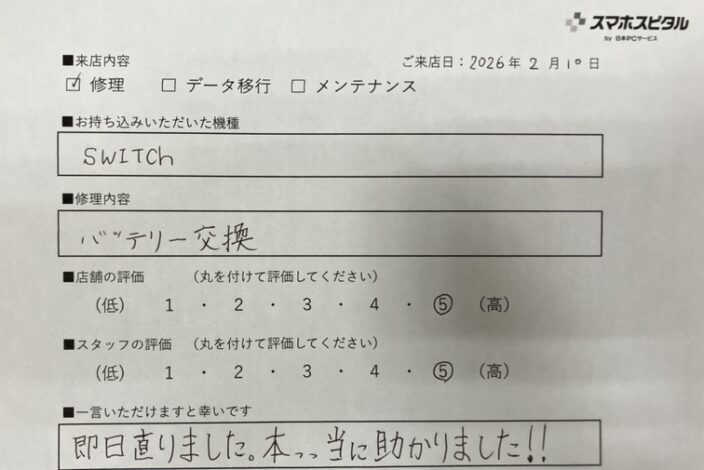 スマホスピタル
by 日本PCサービス
■来店内容
ご来店日：2026年 2月10日
☑ 修理 □ データ移行 □ メンテナンス
■お持ち込みいただいた機種
SWITCh
■修理内容
バッテリー交換
■店舗の評価 （丸を付けて評価してください）
（低） 1 ・ 2 ・ 3 ・ 4 ・ ⑤ （高）
■スタッフの評価 （丸を付けて評価してください）
（低） 1 ・ 2 ・ 3 ・ 4 ・ ⑤ （高）
■一言いただけますと幸いです
即日直りました。本っっ当に助かりました!!